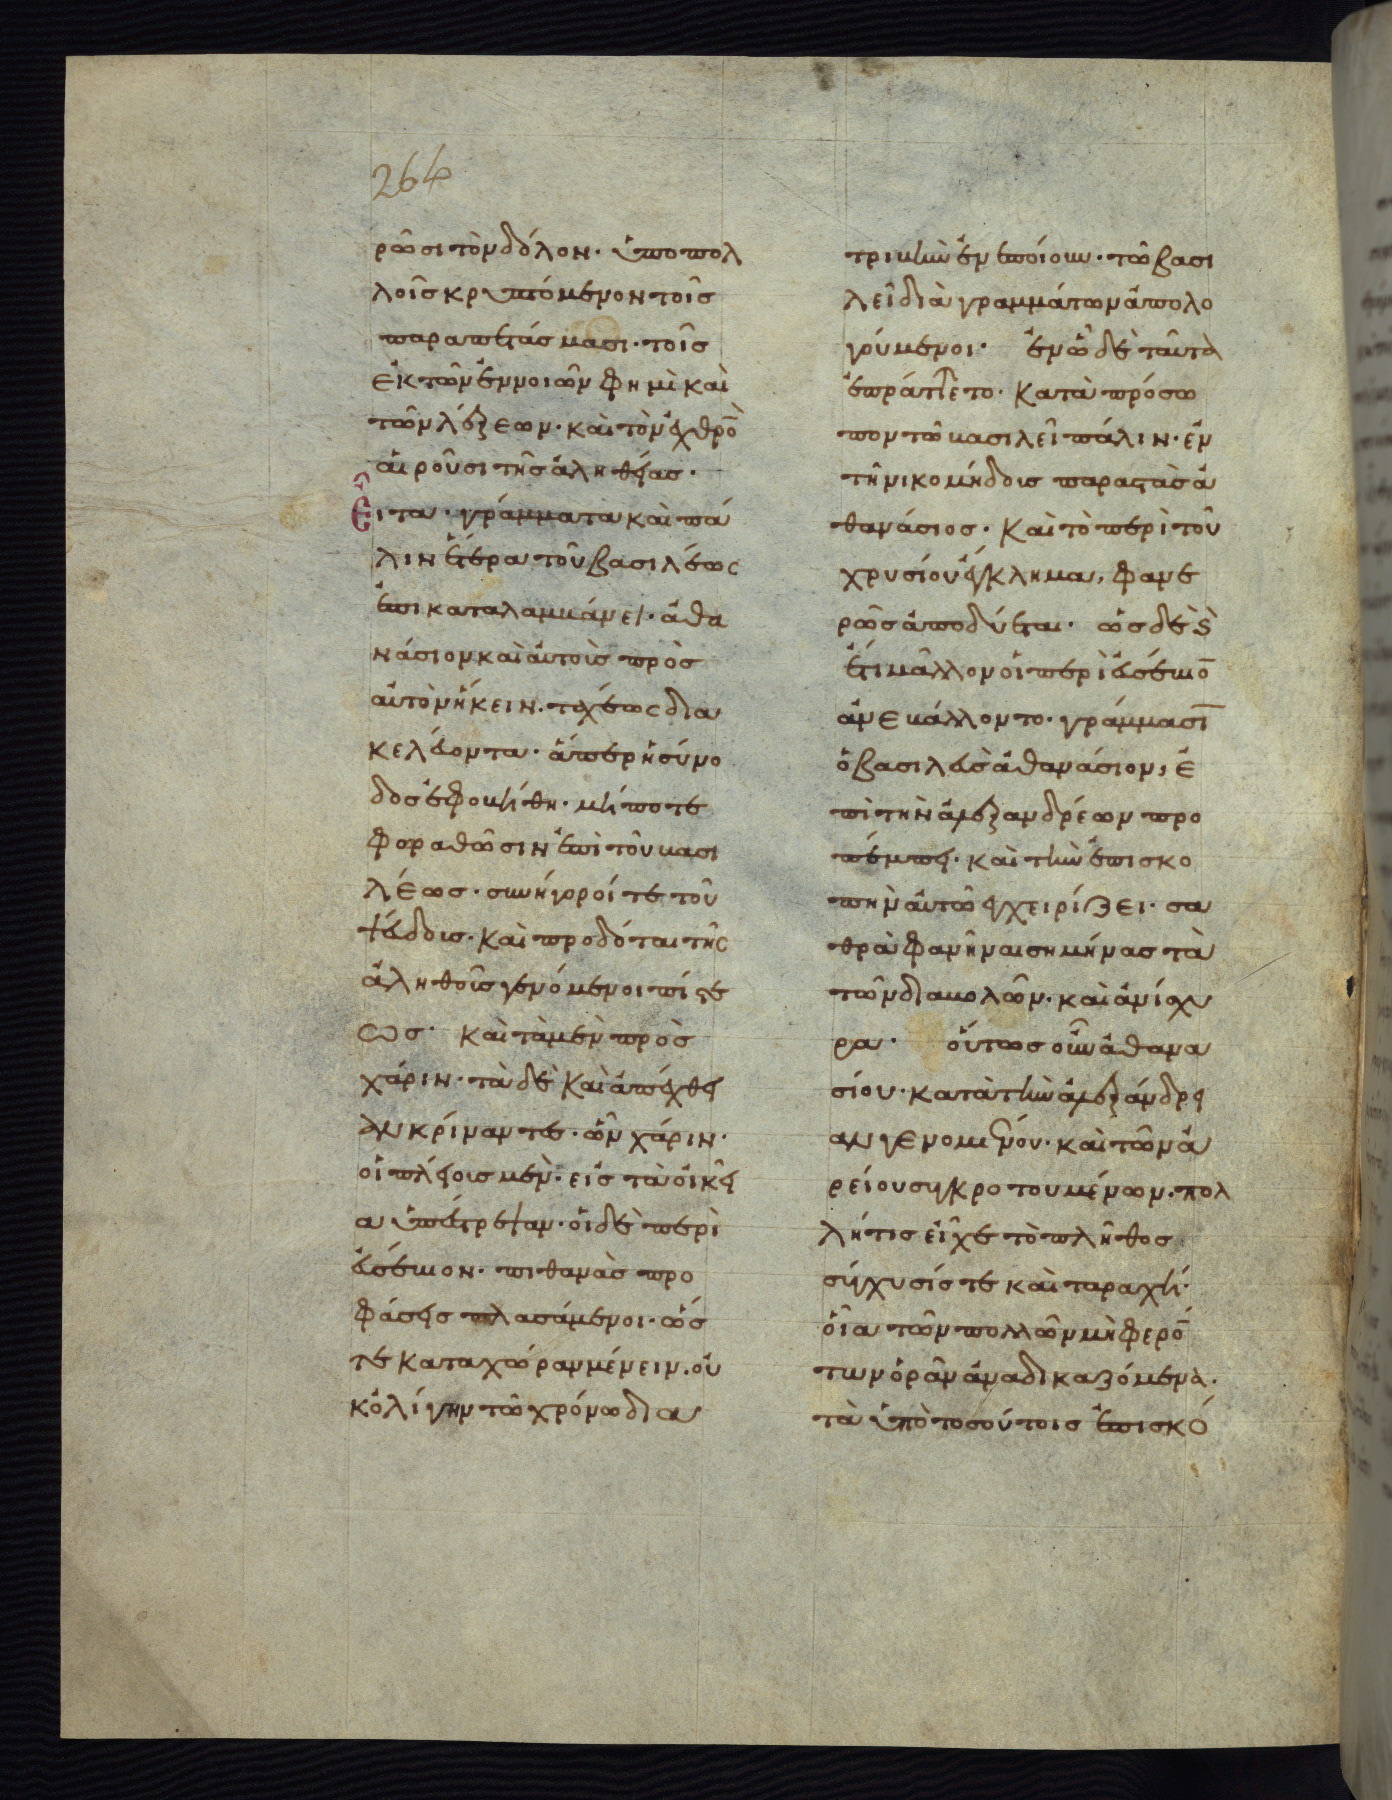 264
ρῶσι τὸν δόλον· ὑπὸ πολ
λοῖς κρυπτόμενον τοῖς
παραπετάσμασι· τοῖς
ἐκ τῶν ἐννοιῶν φημὶ καὶ
τῶν λέξεων· καὶ τὸν ἐχθρὸ̄
αἱροῦσι τῆς ἀληθείας·
Εἶτα· γράμματα καὶ πά
λιν ἕτερα τοῦ βασιλέως
ἐπικαταλαμβάνει· ἀθα
νάσιον καὶ αὐτοὺς πρὸς
αὐτὸν ἥκειν· ταχέως δια
κελεύοντα· ἅπερ ἡ σύνο
δος ἐφοβήθη· μήποτε
φοραθῶσιν ἐπὶ τοῦ βασι
λέως· συνήγοροί τε τοῦ
ψεύδους· καὶ προδόται τῆς
ἀληθοῦς γενόμενοι πίστε
ως· καὶ τὰ μὲν πρὸς
χάριν· τὰ δὲ καὶ ἀπεχθεί
αν κρίναντες· ὧν χάριν·
οἱ πλείους μὲν· εἰς τὰ οἰκεῖ
α ὑπέτρεψαν· οἱ δὲ περὶ
εὐσέβιον· πιθανὰς προ
φάσεις πλασάμενοι· ὥσ
τε καταχώραν μένειν· οὐ
κ ὀλίγην τῶ χρόνω δια
τριβὴν ἐνεποίουν· τῶ βασι
λεῖ διὰ γραμμάτων ἀπολο
γούμενοι· ἐν ὧ δὲ ταῦτα
ἐπράττετο· κατὰ πρόσω
πον τῶ βασιλεῖ πάλιν· ἐν
τῆ νικομήδους παραστὰς ἀ
θανάσιος· καὶ τὸ περὶ τοῦ
χρυσίου ἔγκλημα, φανε
ρῶς ἀποδύεται· ὡς δὲ
ἔτι μᾶλλον οἱ περὶ εὐσέβιο̄
ἀνεβάλλοντο· γράμμασῑ
ὁ βασιλεὺς ἀθανάσιον, ἐ
πὶ τὴν ἀλεξανδρέων προ
πέμπει· καὶ τὴν ἐπισκο
πὴν αὐτῶ ἐγχειρίζει· σα
θρὰ φανῆναι σημήνας τὰ
τῶν διαβολῶν· καὶ ἀνίσχυ
ρα· οὕτως οὖν ἀθανα
σίου· κατὰ τὴν ἀλεξάνδρει
αν γενομένου· καὶ τῶν ἀ
ρείου συγκροτουμένων· πολ
λή τις εἶχε τὸ πλῆθος
σύγχυσίς τε καὶ ταραχή·
οἷα τῶν πολλῶν μὴ φερό̄
των ὁρᾶν ἀναδικαζόμενα·
τὰ ὑπὸ τοσούτοις ἐπισκό